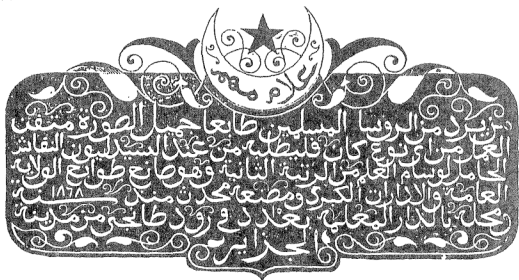 إعلام مهم
من يريد من الروسا المسلمين طابعا جميل الصورة متقن
العمل من اي نوع كان فليطلبه من عند السيد ليون النقاش
الحامل لوسام العمل من الرتبة الثانية وهو صانع طوابع الولاية
العامة والادارات الكبرى ومصنعه محدث من مدة سنة ١٨٦٨
ومحله بالدار المعلمة بعدد في رود طانجي من مدينة
الجزائر